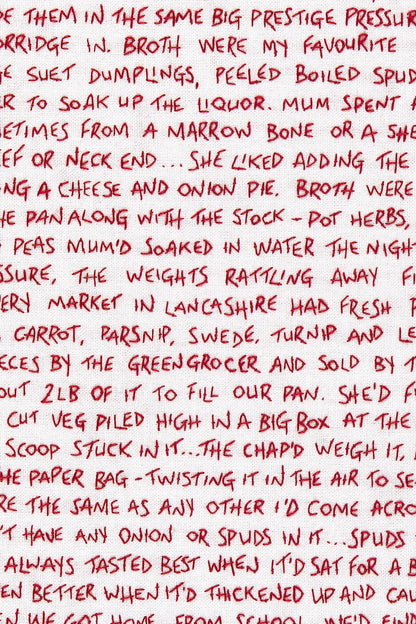 E THEM IN THE SAME BIG PRESTIGE PRESSUR
ORRIDGE IN. BROTH WERE MY FAVOURITE
GE SUET DUMPLINGS, PEELED BOILED SPUD
ER TO SOAK UP THE LIQUOR. MUM SPENT
ETIMES FROM A MARROW BONE OR A SHE
EF OR NECK END... SHE LIKED ADDING THE
NG A CHEESE AND ONION PIE. BROTH WERE
HE PAN ALONG WITH THE STOCK - POT HERBS,
PEAS MUM'D SOAKED IN WATER THE NIGH
SSURE, THE WEIGHTS RATTLING AWAY F
ERY MARKET IN LANCASHIRE HAD FRESH P
, CARROT, PARSNIP, SWEDE, TURNIP AND LE
ECES BY THE GREENGROCER AND SOLD BY T
OUT 2LB OF IT TO FILL OUR PAN. SHE'D F
CUT VEG PILED HIGH IN A BIG BOX AT THE
SCOOP STUCK IN IT...THE CHAP'D WEIGH IT,
HE PAPER BAG - TWISTING IT IN THE AIR TO SE
RE THE SAME AS ANY OTHER I'D COME ACRO
'T HAVE ANY ONION OR SPUDS IN IT...SPUDS
ALWAYS TASTED BEST WHEN IT'D SAT FOR A B
EN BETTER WHEN IT'D THICKENED UP AND CAU
EN WE GOT HOME FROM SCHOOL WE'D FIND